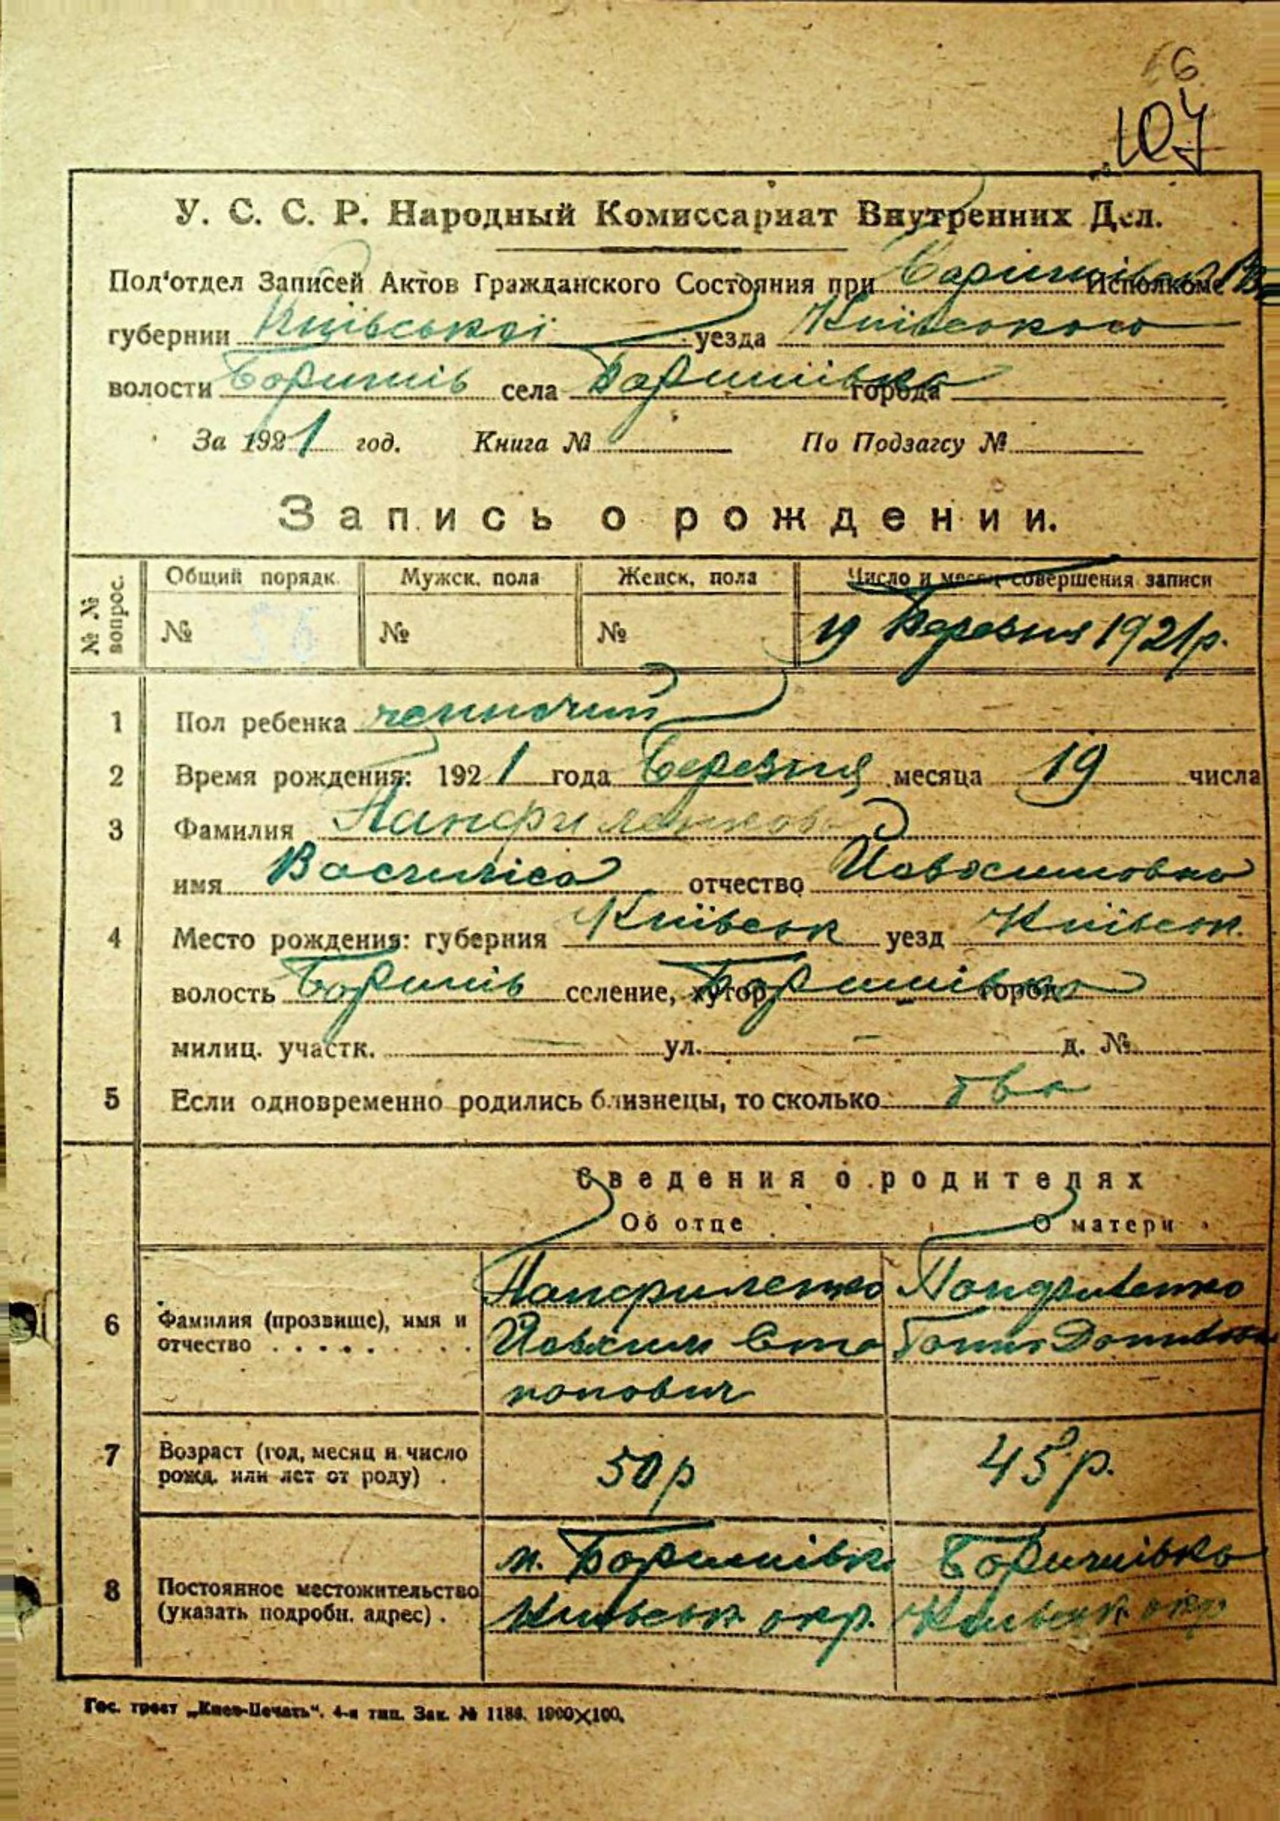 66
107
У. С. С. Р. Народный Комиссариат Внутренних Дел.
Под'отдел Записей Актов Гражданского Состояния при Исполкоме
губернии Київської уезда Київського
волости Боришпів села Боришпівка города
За 1921 год. Книга № По Подзагсу №
Запись о рождении.
№ № вопрос. Общий порядк. Мужск. пола Женск. пола Число и месяц совершения записи
№ 56 № № 19 Березня 1921 р.
1 Пол ребенка жиночий
2 Время рождения: 1921 года Березня месяца 19 числа
3 Фамилия Панфиленкова
имя Василіса отчество Йовхимовна
4 Место рождения: губерния Київськ уезд Київськ.
волость селение, хутор город
милиц. участк. — ул. — д. №
5 Если одновременно родились близнецы, то сколько два
Сведения о родителях
Об отце О матери
6 Фамилия (прозвище), имя и отчество Панфиленко Панфиленко
Йовхим
7 Возраст (год, месяц и число рожд. или лет от роду) 50 р 45 р.
8 Постоянное местожительство (указать подробн. адрес) м.
Київськ. окр. Київськ. окр
Гос. трест „Киев-Печать“. 4-я тип. Зак. № 1186. 1900×100.